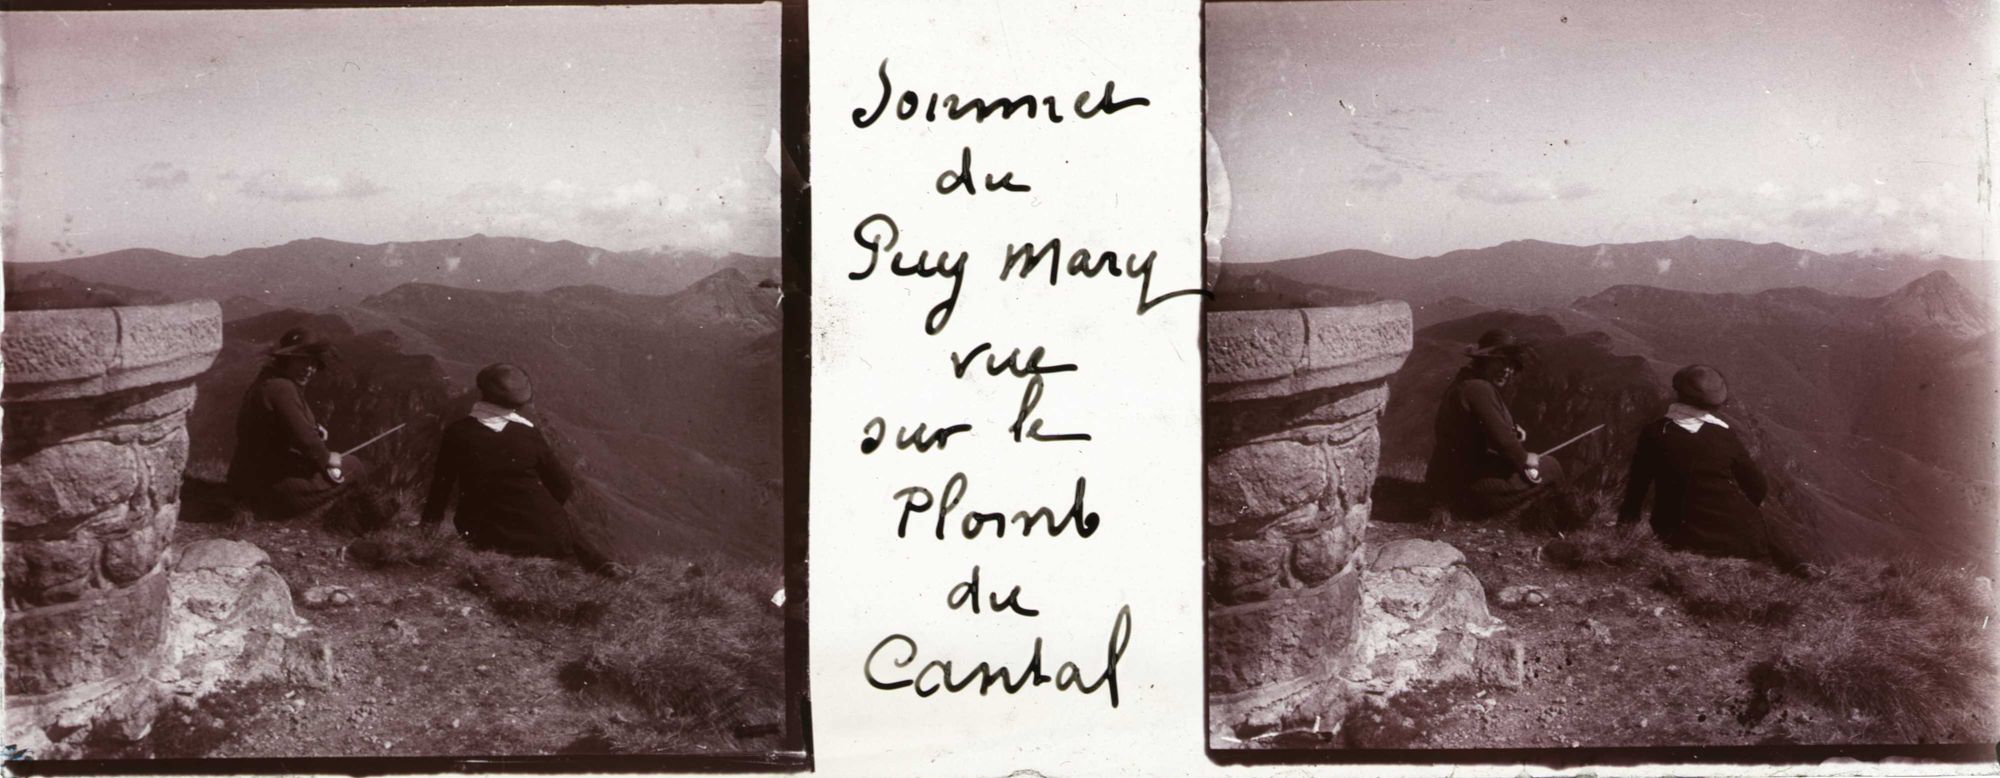 Sommet
du
Puy Mary
vue
sur le
Plomb
du
Cantal